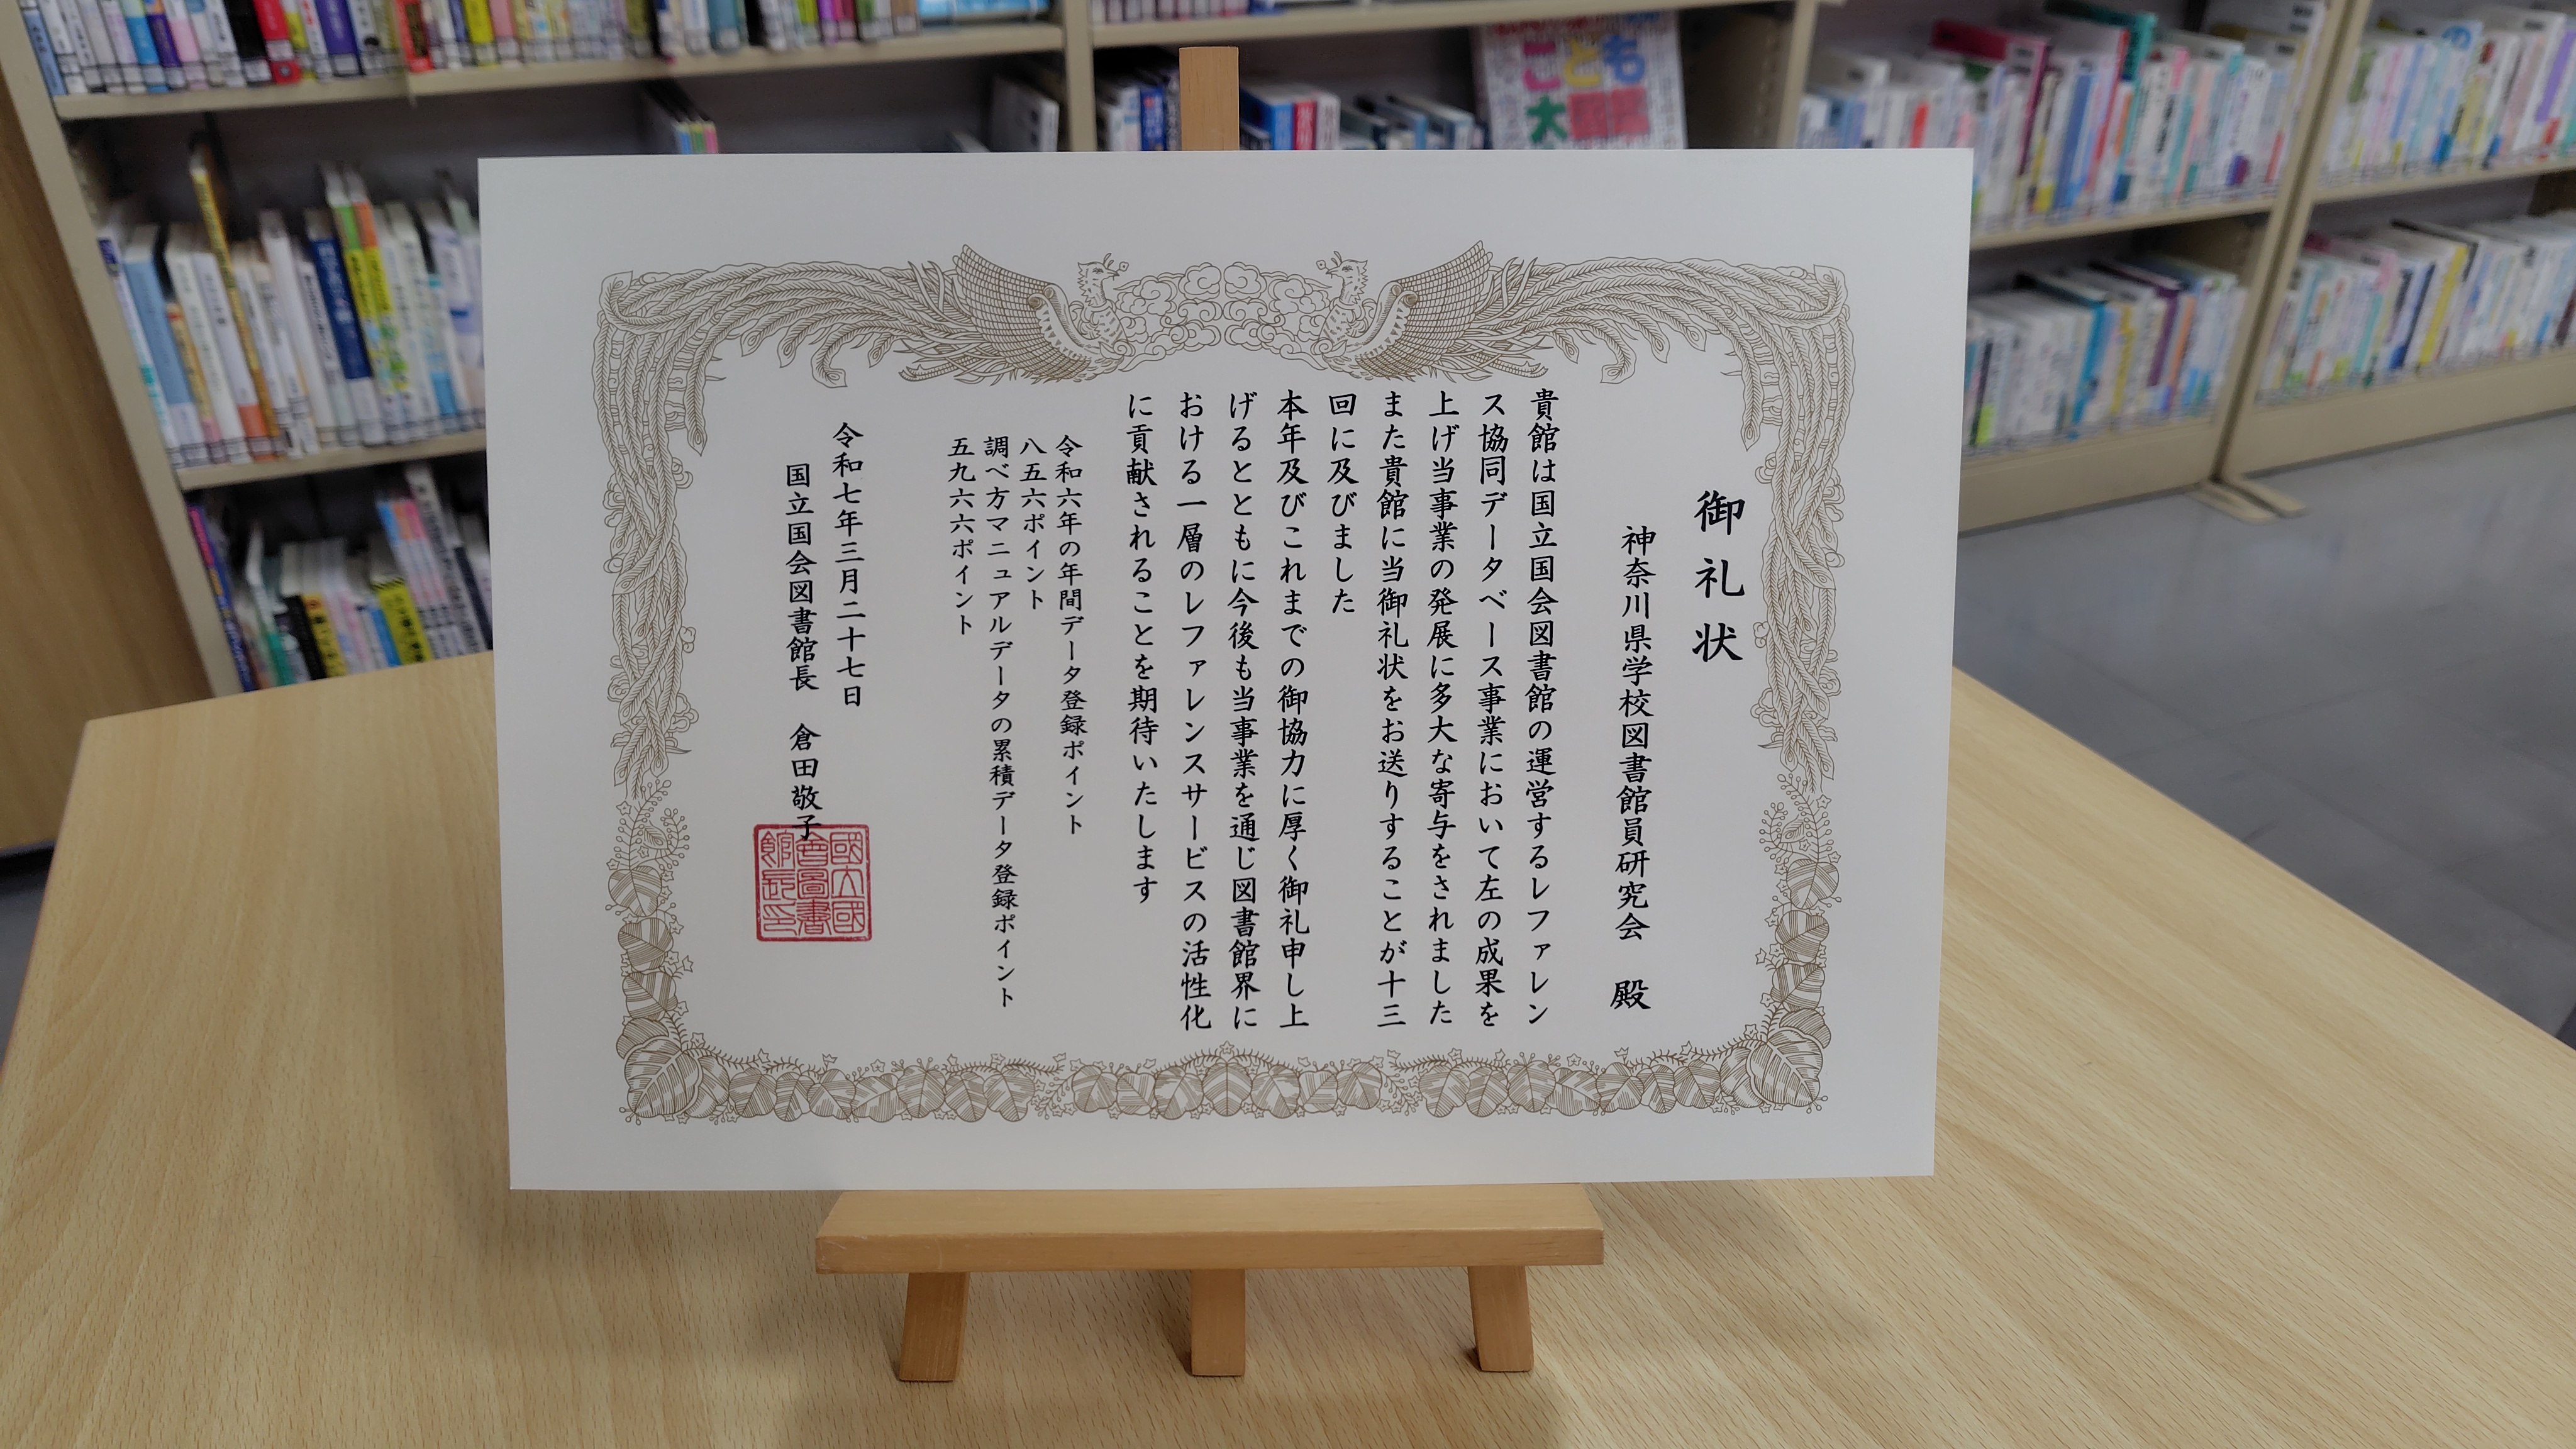 御礼状
神奈川県学校図書館員研究会　殿
貴館は国立国会図書館の運営するレファレン
ス協同データベース事業において左の成果を
上げ当事業の発展に多大な寄与をされました
また貴館に当御礼状をお送りすることが十三
回に及びました
本年及びこれまでの御協力に厚く御礼申し上
げるとともに今後も当事業を通じ図書館界に
おける一層のレファレンスサービスの活性化
に貢献されることを期待いたします
令和六年の年間データ登録ポイント
八五六ポイント
調べ方マニュアルデータの累積データ登録ポイント
五九六六ポイント
令和七年三月二十七日
国立国会図書館長　倉田敬子
國立國
會圖書
館長印
こども
大図鑑